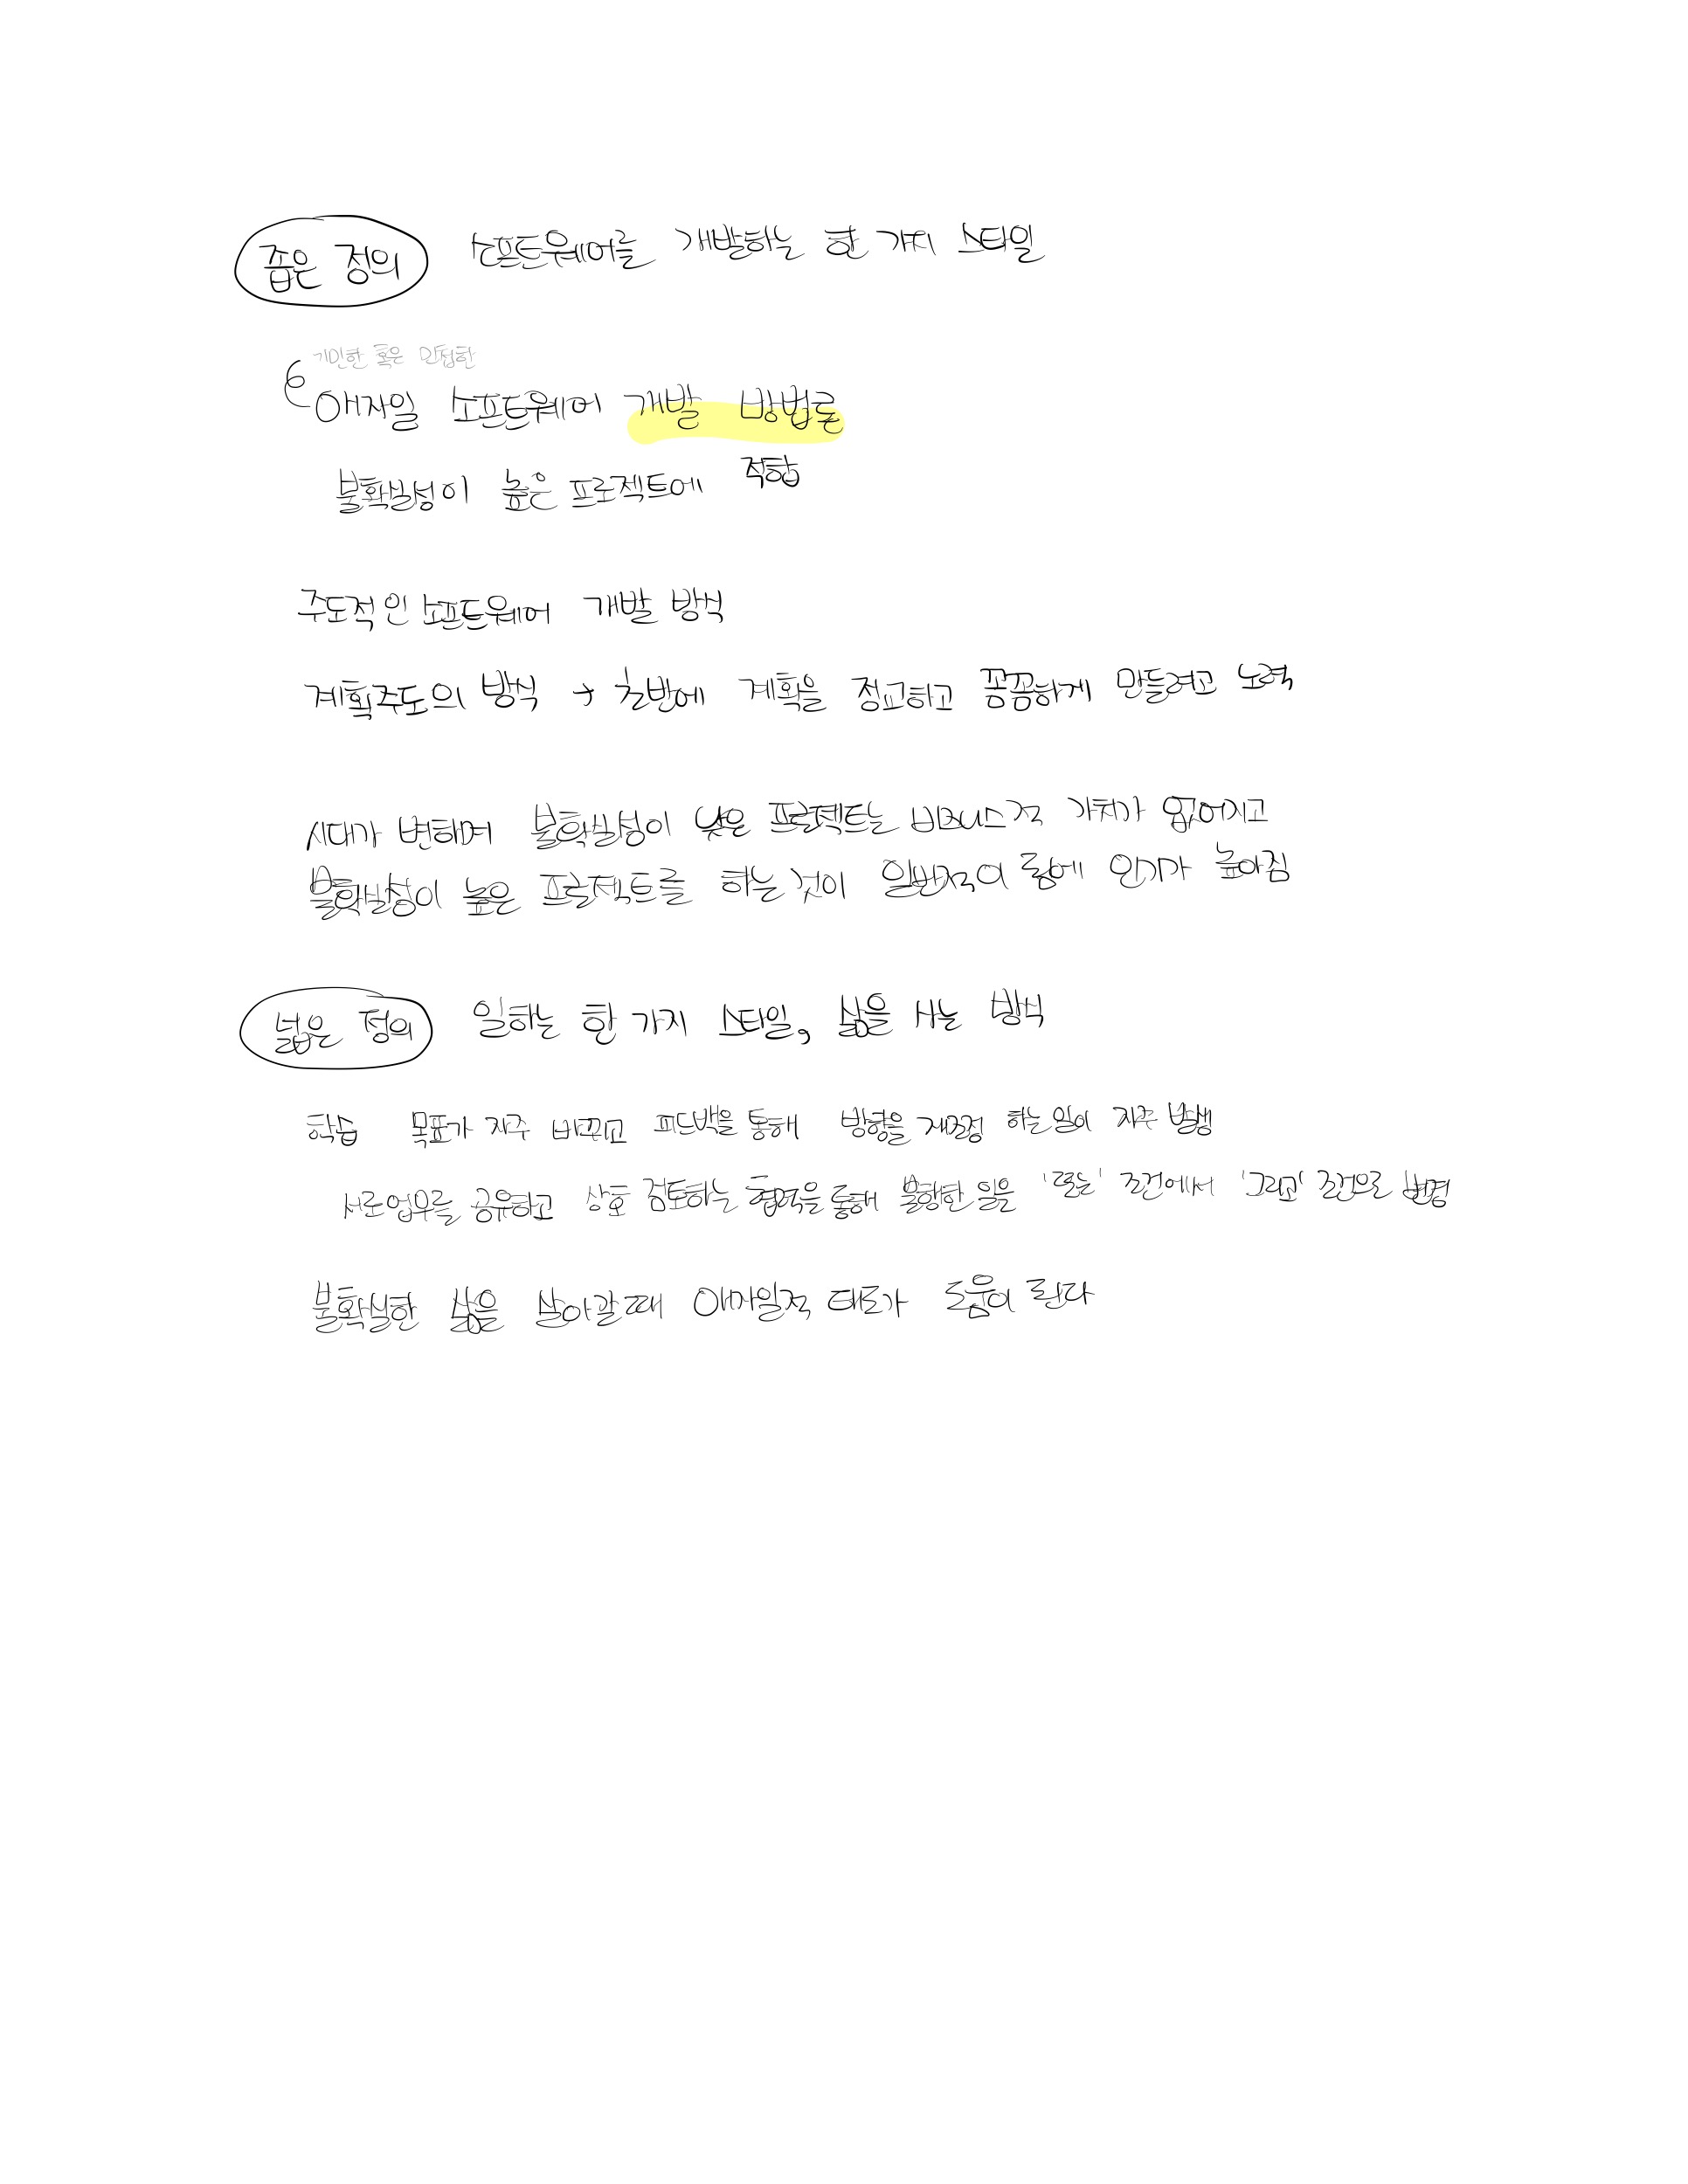 좁은 정의 소프트웨어를 개발하는 한 가지 스타일
기민한 혹은 민첩한
애자일 소프트웨어 개발 방법론
불확실성이 높은 프로젝트에 적합
주도적인 소프트웨어 개발 방식
계획주도의 방식 → 초반에 계획을 정교하고 꼼꼼하게 만들려고 노력
시대가 변하며 불확실성이 낮은 프로젝트는 비즈니스적 가치가 없어지고
불확실성이 높은 프로젝트를 하는 것이 일반적이 됨에 인기가 높아짐
넓은 정의 일하는 한 가지 스타일, 삶을 사는 방식
학습 목표가 자주 바뀌고 피드백을 통해 방향을 재조정 하는 일이 자주 발생
서로 업무를 공유하고 상호 검토하는 협력을 통해 불행한 일을 '또는' 조건에서 '그리고' 조건으로 변경
불확실한 삶을 살아갈 때 애자일적 태도가 도움이 된다